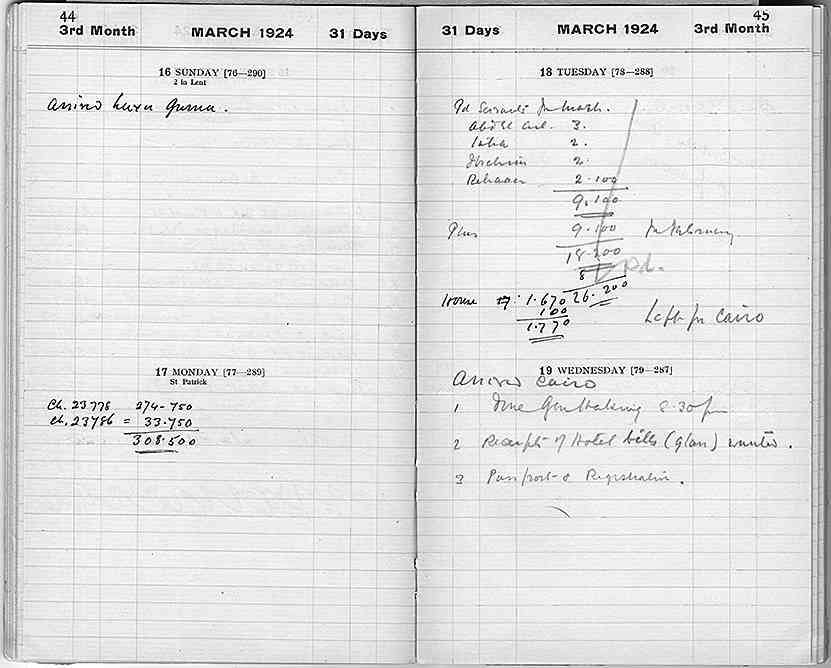 44
3rd Month MARCH 1924 31 Days
16 SUNDAY [76—290]
2 in Lent
Arrived Luxor Gurna.
17 MONDAY [77—289]
St Patrick
Ch. 23778 274-750
Ch. 23786 = 33.750
308.500
45
31 Days MARCH 1924 3rd Month
18 TUESDAY [78—288]
Pd Servants for
3.
2.
2.
2.100
9.100
Plus 9.100 for February
18.200
8 Pd.
26.200
1.670
100
1.770
Left for Cairo
19 WEDNESDAY [79—287]
Arrived Cairo
1 Dine 8.30 pm
2 Receipts of Hotel bills (glass) wanted.
3 Passport & Registration.